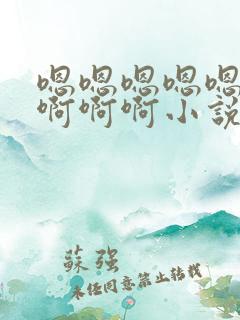 嗯嗯嗯嗯嗯
啊啊啊小說
蘇强
未任同意禁止转载